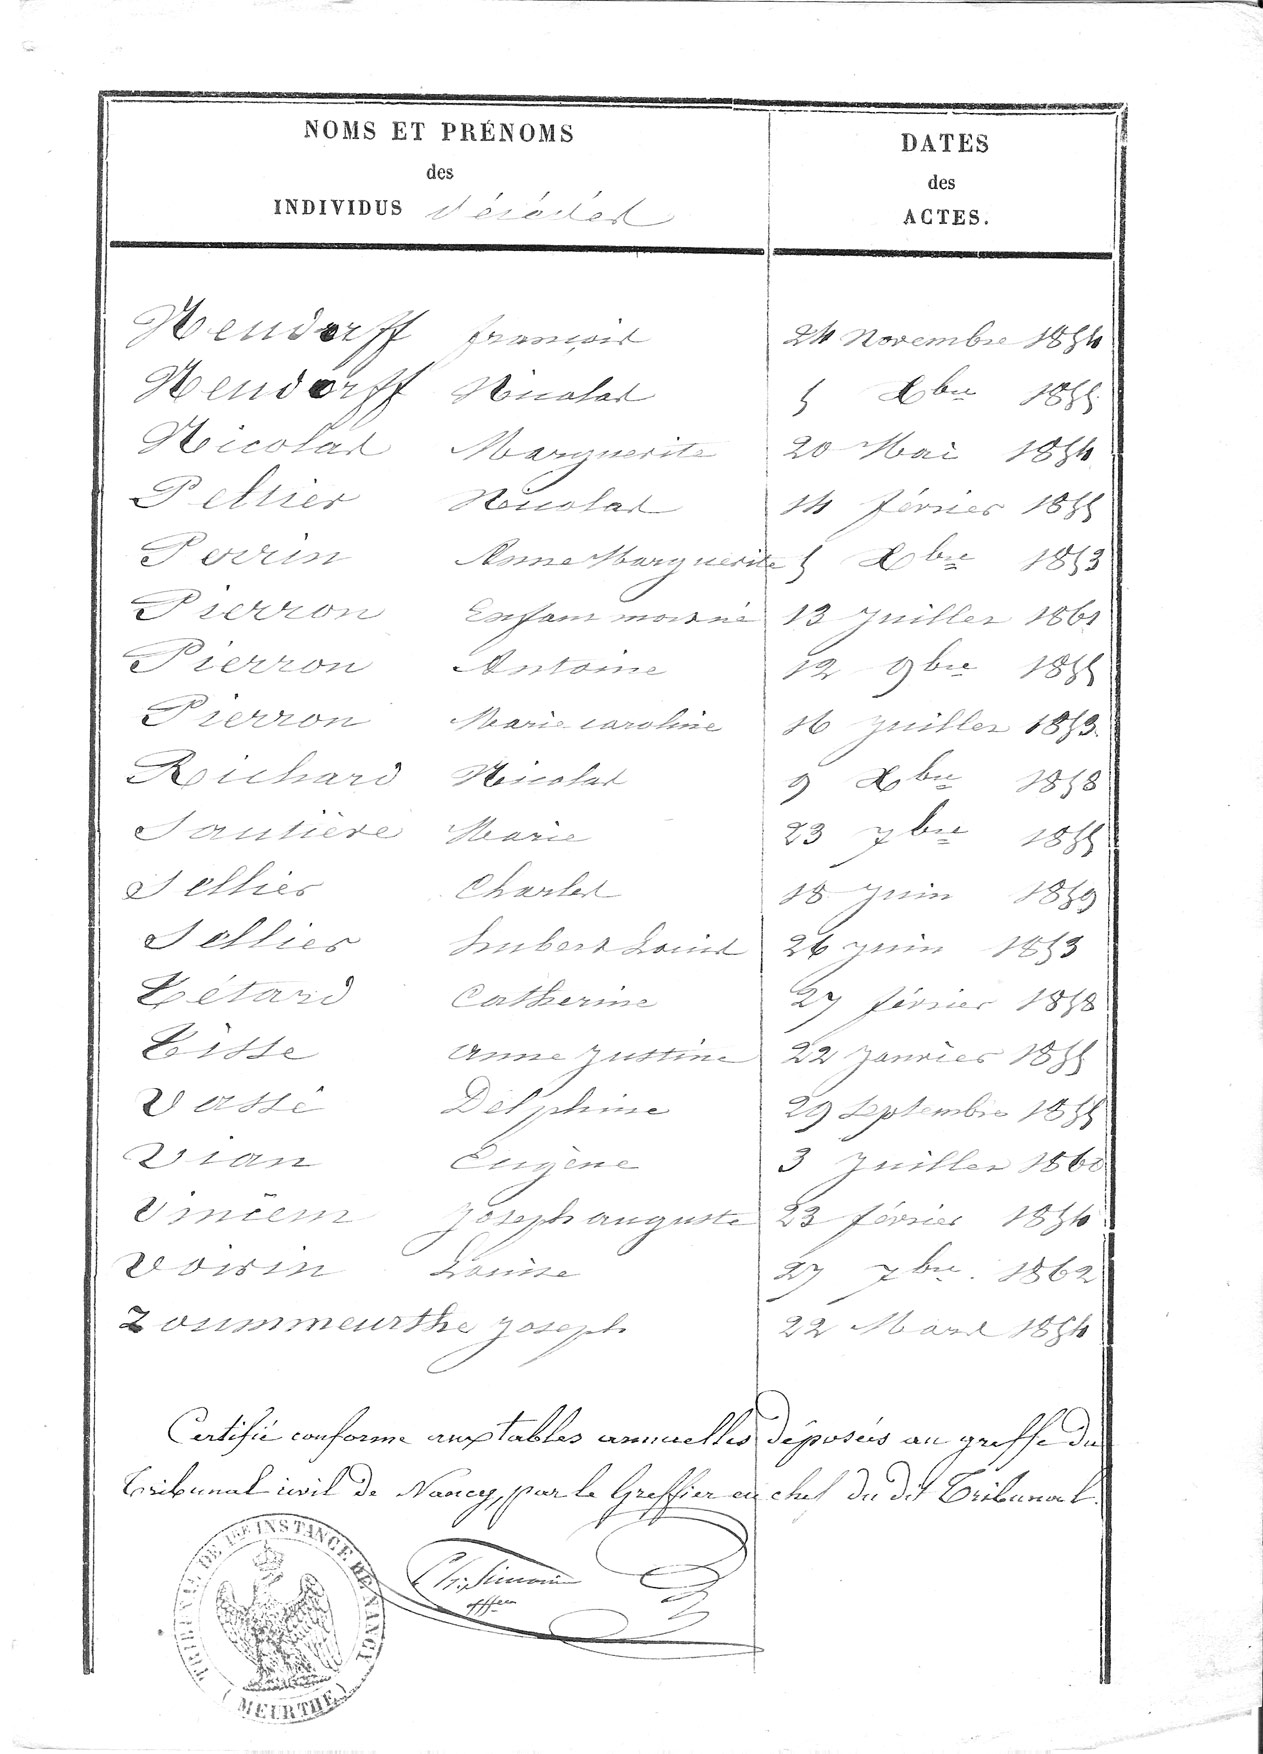 NOMS ET PRÉNOMS
des
INDIVIDUS décédés
DATES
des
ACTES.
Neudorff françois 24 Novembre 1854
Neudorff Nicolas 5 Xbre 1855
Nicolas Marguerite 20 Mai 1854
Peltier Nicolas 14 février 1855
Perrin Anne Marguerite 5 Xbre 1853
Pierron Enfant mort né 13 Juillet 1861
Pierron Antoine 12 9bre 1855
Pierron Marie caroline 16 Juillet 1853.
Richard Nicolas 9 Xbre 1858
Sautière Marie 23 7bre 1855
Sellier Charles 18 Juin 1859
Sellier hubert Louis 26 Juin 1853
Tétard Catherine 27 février 1858
Tisse anne Justine 22 Janvier 1855
Vassé Delphine 29 Septembre 1855
Vian Eugène 3 Juillet 1860
Vincent Joseph auguste 23 février 1854
Voirin Louise 27 7bre. 1862
Zoummeurthe Joseph 22 Mars 1854
Certifié conforme aux tables annuelles déposées au greffe du
Tribunal civil de Nancy, par le Greffier en chef du dit Tribunal.
TRIBUNAL DE 1ERE INSTANCE DE NANCY
(MEURTHE)